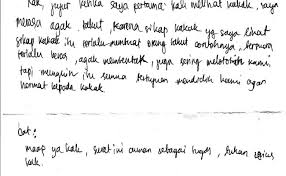 Kak, jujur ketika saya pertama kali melihat kakak, saya
merasa agak takut, karena sikap kakak yg saya lihat
sikap kakak itu terlalu membuat orang takut contohnya,
terlalu keras, agak membentak, juga sering melototin kami
tapi mungkin itu semua tujuan mendidik kami agar
hormat kepada kakak.
Cat:
maap ya kak, surat ini cuman sebagai tugas, bukan serius
kak.